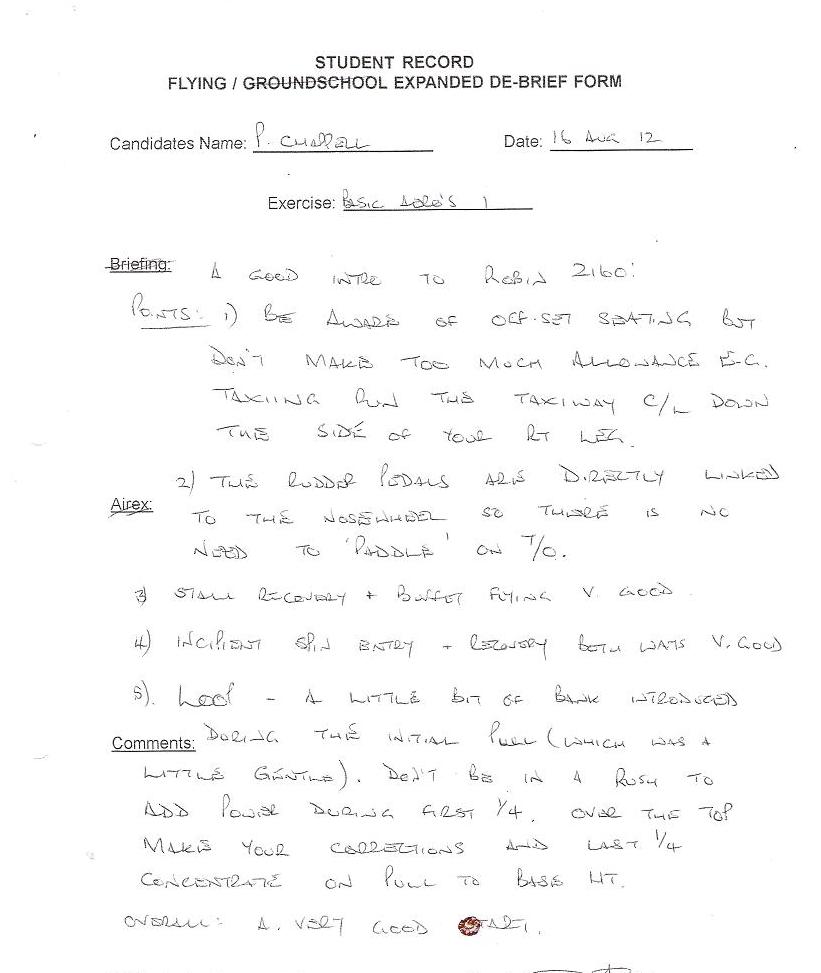 STUDENT RECORD
FLYING / GROUNDSCHOOL EXPANDED DE-BRIEF FORM
Candidates Name: P. CHAPPELL Date: 16 AUG 12
Exercise: BASIC AERO'S 1
Briefing: A GOOD INTRO TO ROBIN 2160:
POINTS: 1) BE AWARE OF OFF-SET SEATING BUT
DON'T MAKE TOO MUCH ALLOWANCE E.G.
TAXIING RUN THE TAXIWAY C/L DOWN
THE SIDE OF YOUR RT LEG.
2) THE RUDDER PEDALS ARE DIRECTLY LINKED
Airex: TO THE NOSEWHEEL SO THERE IS NO
NEED TO 'PADDLE' ON T/O.
3) STALL RECOVERY + BUFFET FLYING V. GOOD
4) INCIPIENT SPIN ENTRY + RECOVERY BOTH WAYS V. GOOD
5). LOOP - A LITTLE BIT OF BANK INTRODUCED
Comments: DURING THE INITIAL PULL (WHICH WAS A
LITTLE GENTLE). DON'T BE IN A RUSH TO
ADD POWER DURING FIRST 1/4. OVER THE TOP
MAKE YOUR CORRECTIONS AND LAST 1/4
CONCENTRATE ON PULL TO BASE HT.
OVERALL: A. VERY GOOD START.